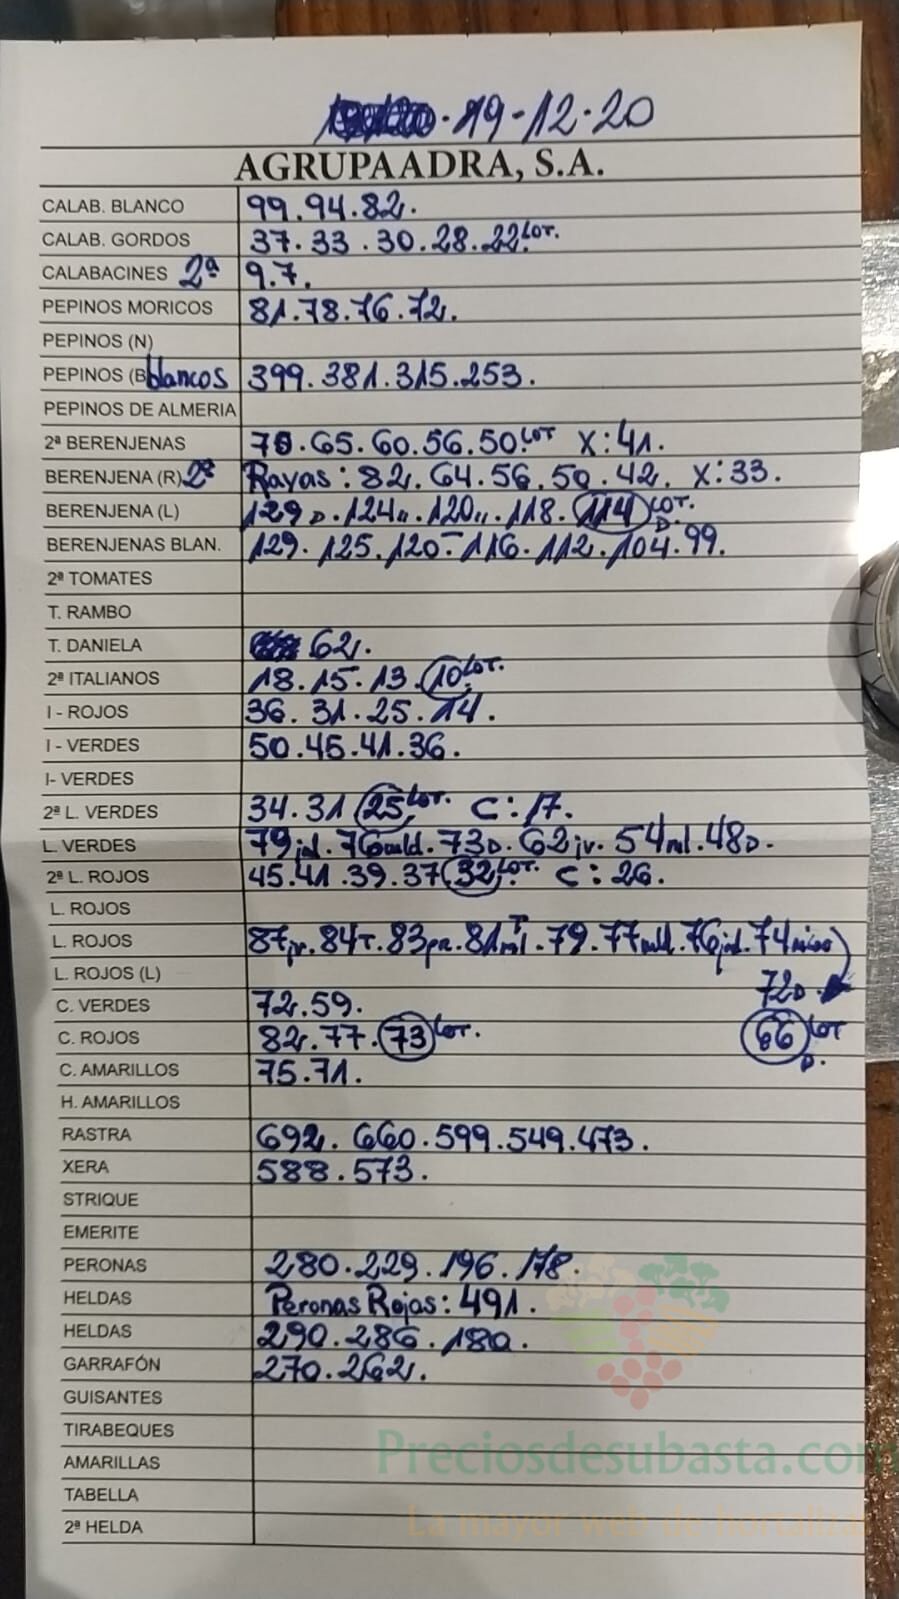 19-12-20
AGRUPAADRA, S.A.
CALAB. BLANCO 99.94.82.
CALAB. GORDOS 37.33.30.28.22 LOT.
CALABACINES 2ª 9.7.
PEPINOS MORICOS 81.78.76.72.
PEPINOS (N)
PEPINOS (B blancos 399.381.315.253.
PEPINOS DE ALMERIA
2ª BERENJENAS 65.60.56.50 LOT X:41.
BERENJENA (R) 2ª Rayas: 82.64.56.50.42. X:33.
BERENJENA (L) 129 D.124 ".120 ".118.114 LOT. D.
BERENJENAS BLAN. 129.125.120-116.112.104.99.
2ª TOMATES
T. RAMBO
T. DANIELA 62.
2ª ITALIANOS 18.15.13.10 LOT.
I - ROJOS 36.31.25.14.
I - VERDES 50.45.41.36.
I- VERDES
2ª L. VERDES 34.31 25 LOT. C:17.
L. VERDES 79 76 73D.62 54 48D.
2ª L. ROJOS 45.41.39.37 32 LOT. C:26.
L. ROJOS
L. ROJOS 87 84T.83 81 T.79.77 76 74
L. ROJOS (L) 72D.
C. VERDES 72.59.
C. ROJOS 82.77.73 LOT. 66 LOT D.
C. AMARILLOS 75.71.
H. AMARILLOS
RASTRA 692.660.599.549.473.
XERA 588.573.
STRIQUE
EMERITE
PERONAS 280.229.196.178.
HELDAS Peronas Rojas: 491.
HELDAS 290.286.180.
GARRAFÓN 270.262.
GUISANTES
TIRABEQUES
Preciosdesubasta.com
AMARILLAS
TABELLA
La mayor web de hortalizas
2ª HELDA